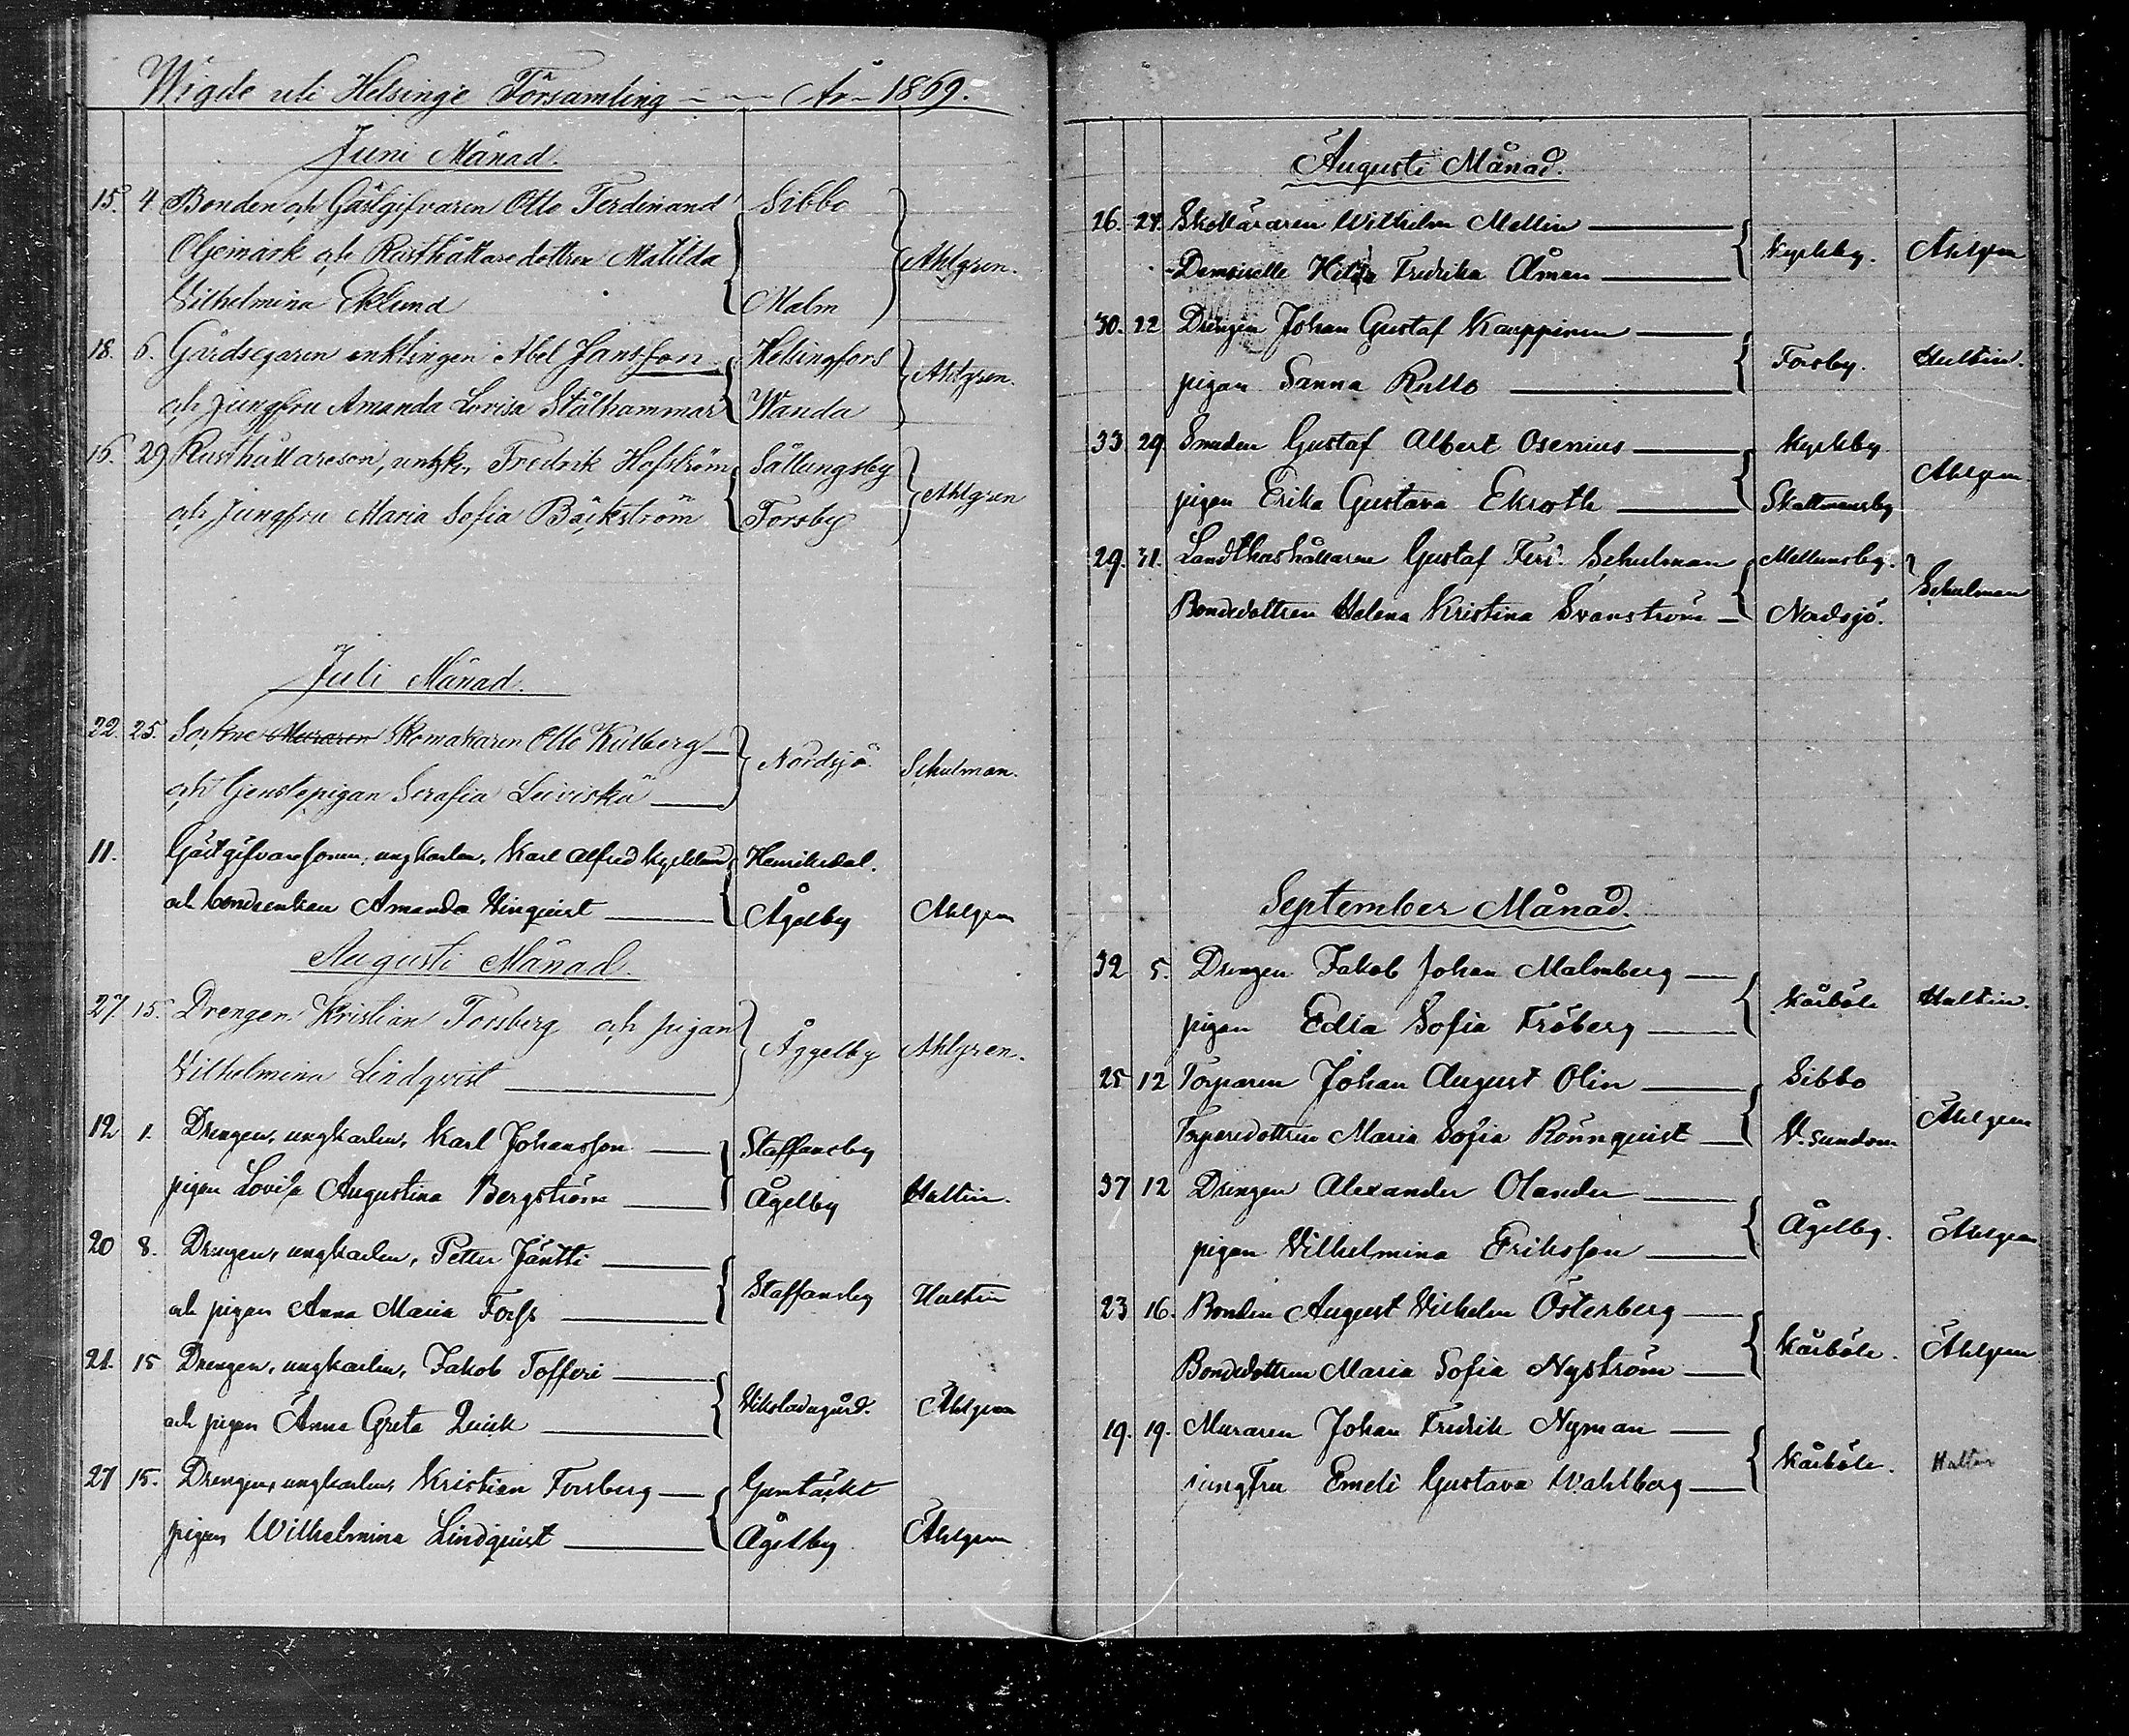 Wigde uti Helsinge Församling — År 1869.
Juni Månad.
15. 4. Bonden och Gästgifvaren Otto Ferdinand Sibbo
Oljemark och Rusthållaredottren Matilda Ahlgren.
Vilhelmina Eklund Malm
18. 6. Gårdsegaren enklingen Abel Jansson Helsingfors Ahlgren.
och Jungfru Amanda Lovisa Stålhammar Wanda
16. 29 Rusthållareson, ungk. Fredrik Hofström
och Jungfru Maria Sofia Bäckström Forsby Ahlgren
Juli Månad.
22. 25. Sockne Muraren Skomakaren Otto Kulberg Nordsjö Schulman.
och Tjenstepigan Serafia Leiviskä
11. Gästgifvaresonen, ungkarlen, Karl Alfred Kycklund Henriksdal.
och bondeenkan Amanda Vinquist Ågelby Ahlgren
Augusti Månad.
27. 15. Drengen Kristian Forsberg och pigan Åggelby Ahlgren.
Vilhelmina Lindqvist
12 1. Drengen, ungkarlen, Karl Johansson Staffansby
pigan Lovisa Augustina Bergström Ågelby Hultin.
20 8. Drengen, ungkarlen, Petter Jäntti
och pigan Anna Maria Forss Staffansby Hultin
21. 15 Drengen, ungkarlen, Jakob Tofferi
och pigan Anna Greta Quick Ahlgren
27 15. Drengen, ungkarlen, Kristian Forsberg Gumtäckt
pigan Wilhelmina Lindquist Ågelby Ahlgren
Augusti Månad.
26. 27. Wilhelm Mellin
Demoiselle Hilda Fredrika Åman Kyrkby. Ahlgren
30. 22 Drengen Johan Gustaf Kauppinen
pigan Sanna Rullo Forsby. Hultin.
33 29. Smeden Gustaf Albert Osenius Kyrkby
pigan Erika Gustava Ekroth Skattmansby Ahlgren
29. 31. Gustaf Ferd. Schulman Mellunsby.
Bondedottren Helena Kristina Svanström Nordsjö. Schulman
September Månad.
32 5. Drengen Jakob Johan Malmberg
pigan Edla Sofia Fröberg Kårböle Hultin.
25 12 Torparen Johan August Olin Sibbo
Torparedottren Maria Sofia Rönnquist V. sundom Ahlgren
37 12 Drengen Alexander Olander
pigan Vilhelmina Eriksson Ågelby. Ahlgren
23 16. Bonden August Vilhelm Österberg
Bondedottren Maria Sofia Nyström Kårböle. Ahlgren
19. 19. Muraren Johan Fredrik Nyman
jungfru Emeli Gustava Wahlberg Kårböle. Hultin